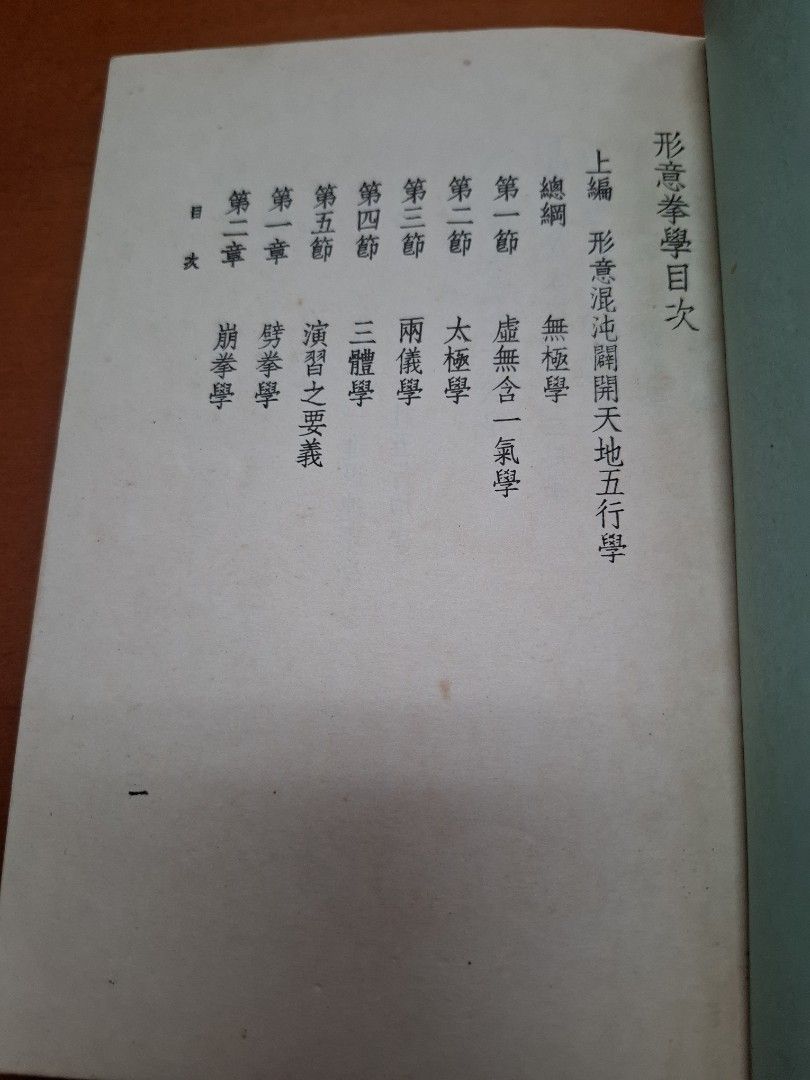 形意拳學目次
上編 形意混沌闢開天地五行學
總綱 無極學
第一節 虛無含一氣學
第二節 太極學
第三節 兩儀學
第四節 三體學
第五節 演習之要義
第一章 劈拳學
第二章 崩拳學
目次
一